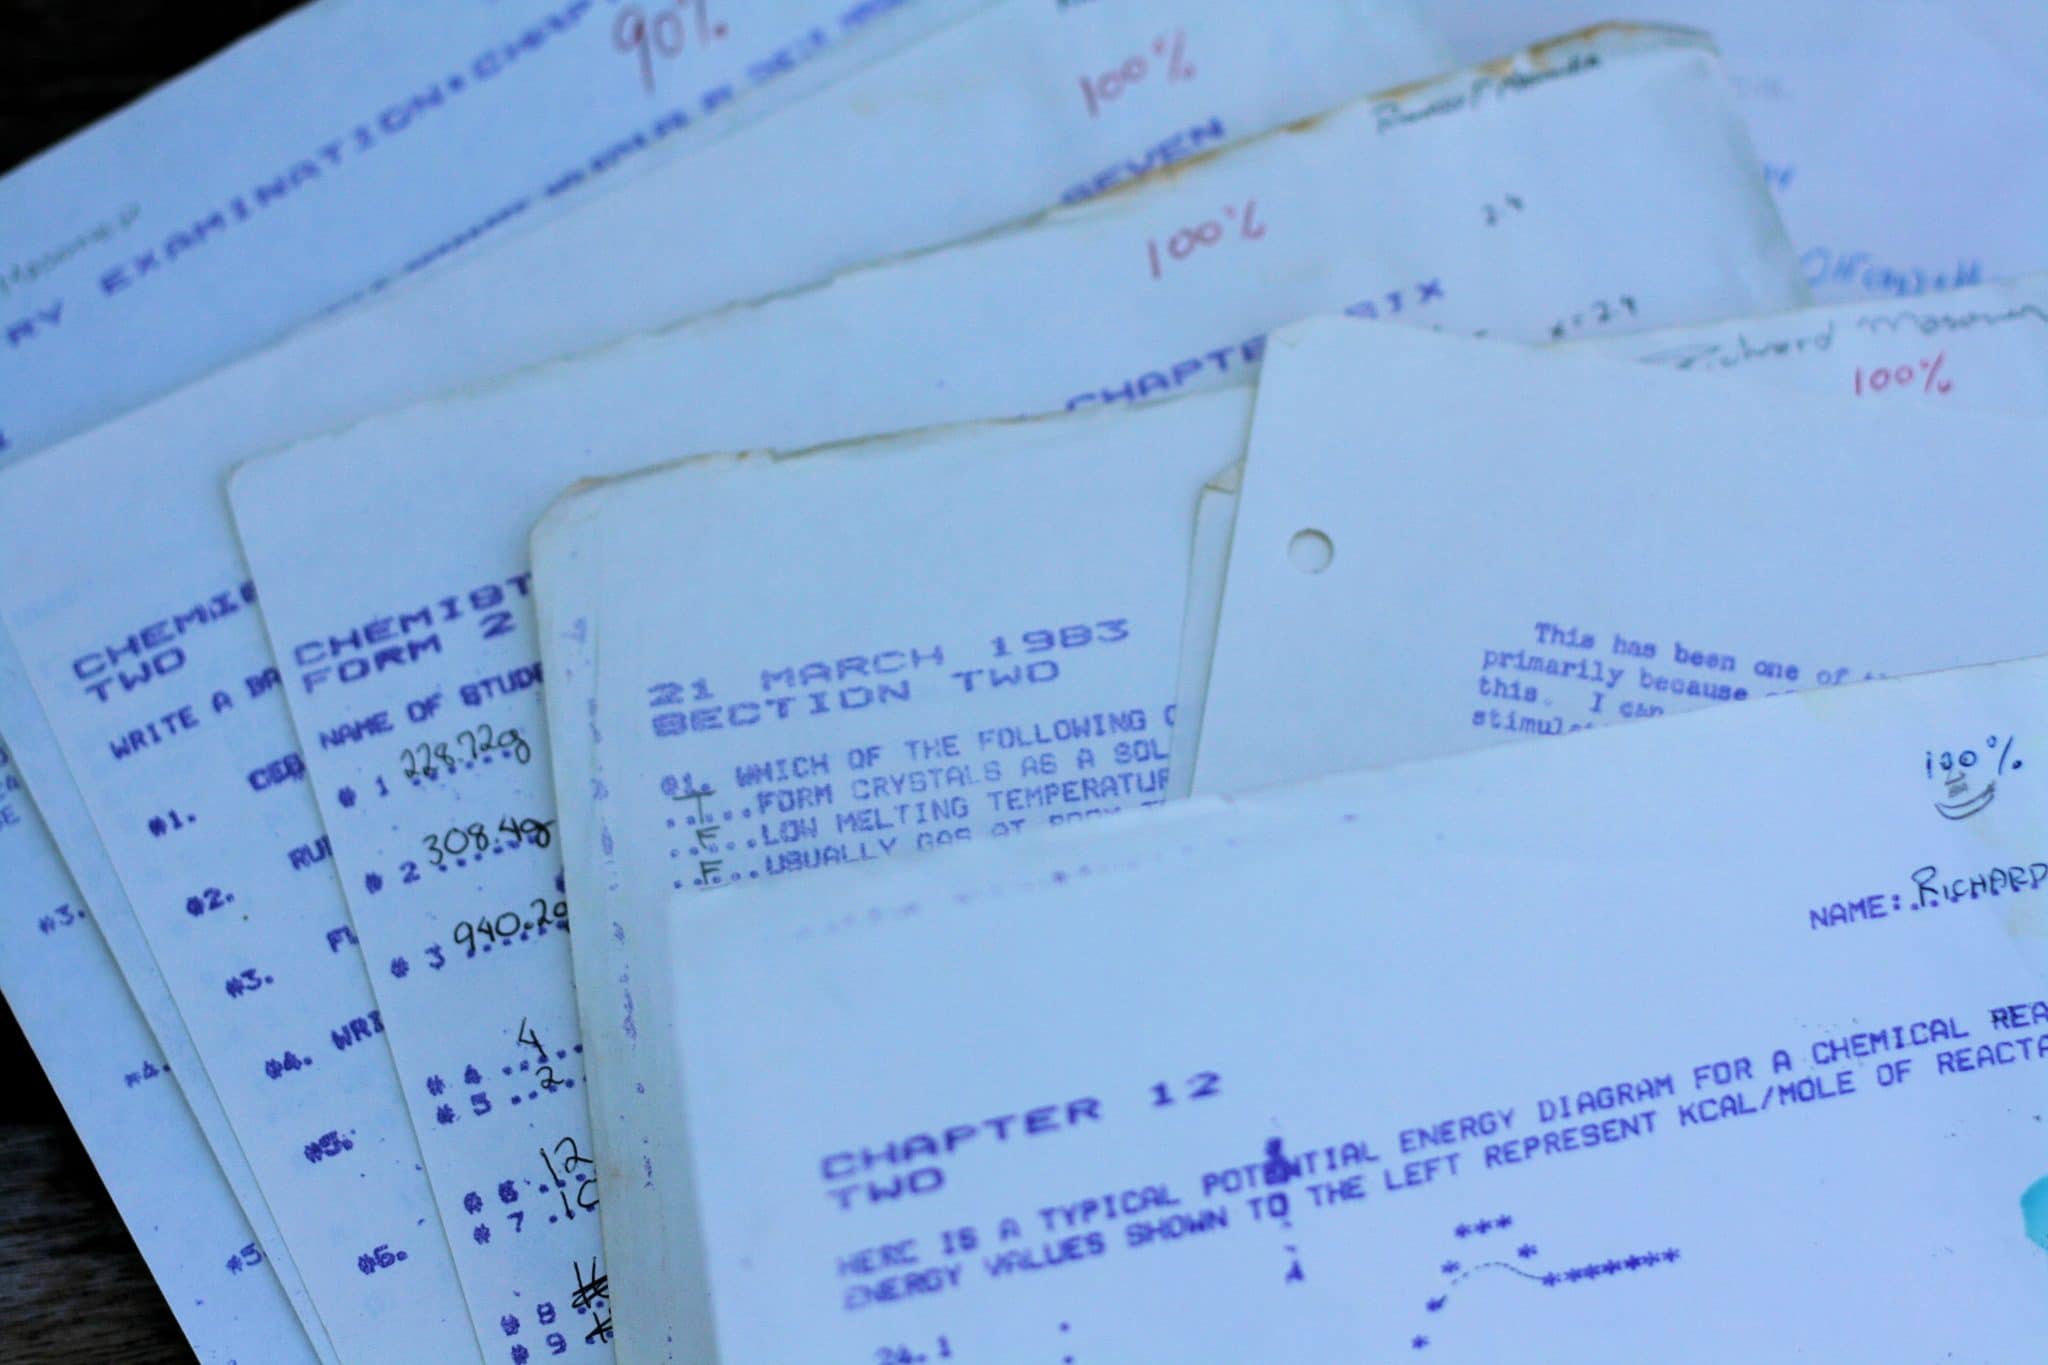 90%
RY EXAMINATION
100%
SEVEN
100%
2.4
x = 2.4
SIX
CHAPTE
Richard
100%
CHEMI
TWO
WRITE A BA
#1.
#2.
#3.
#4. WRI
#5.
#6.
#3.
#4.
#5
CHEMIST
FORM 2
NAME OF STUDE
# 1 228.72g
# 2 308.4g
# 3 940.29
# 4 4
# 5 2
# 6 12
# 7 10
# 8
# 9
21 MARCH 1983
SECTION TWO
#1. WHICH OF THE FOLLOWING
T FORM CRYSTALS AS A SOL
F LOW MELTING TEMPERATUR
F USUALLY GAS AT ROOM
This has been one of
primarily because
this. I can
stimul
100%
NAME: RICHARD
CHAPTER 12
TWO
HERE IS A TYPICAL POTENTIAL ENERGY DIAGRAM FOR A CHEMICAL REA
ENERGY VALUES SHOWN TO THE LEFT REPRESENT KCAL/MOLE OF REACTA
***
* *
* *******
*
*
24.1